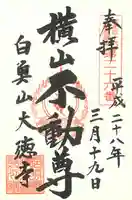 奉拝
平成二十八年
三月十九日
横山不動尊
白魚山大徳寺